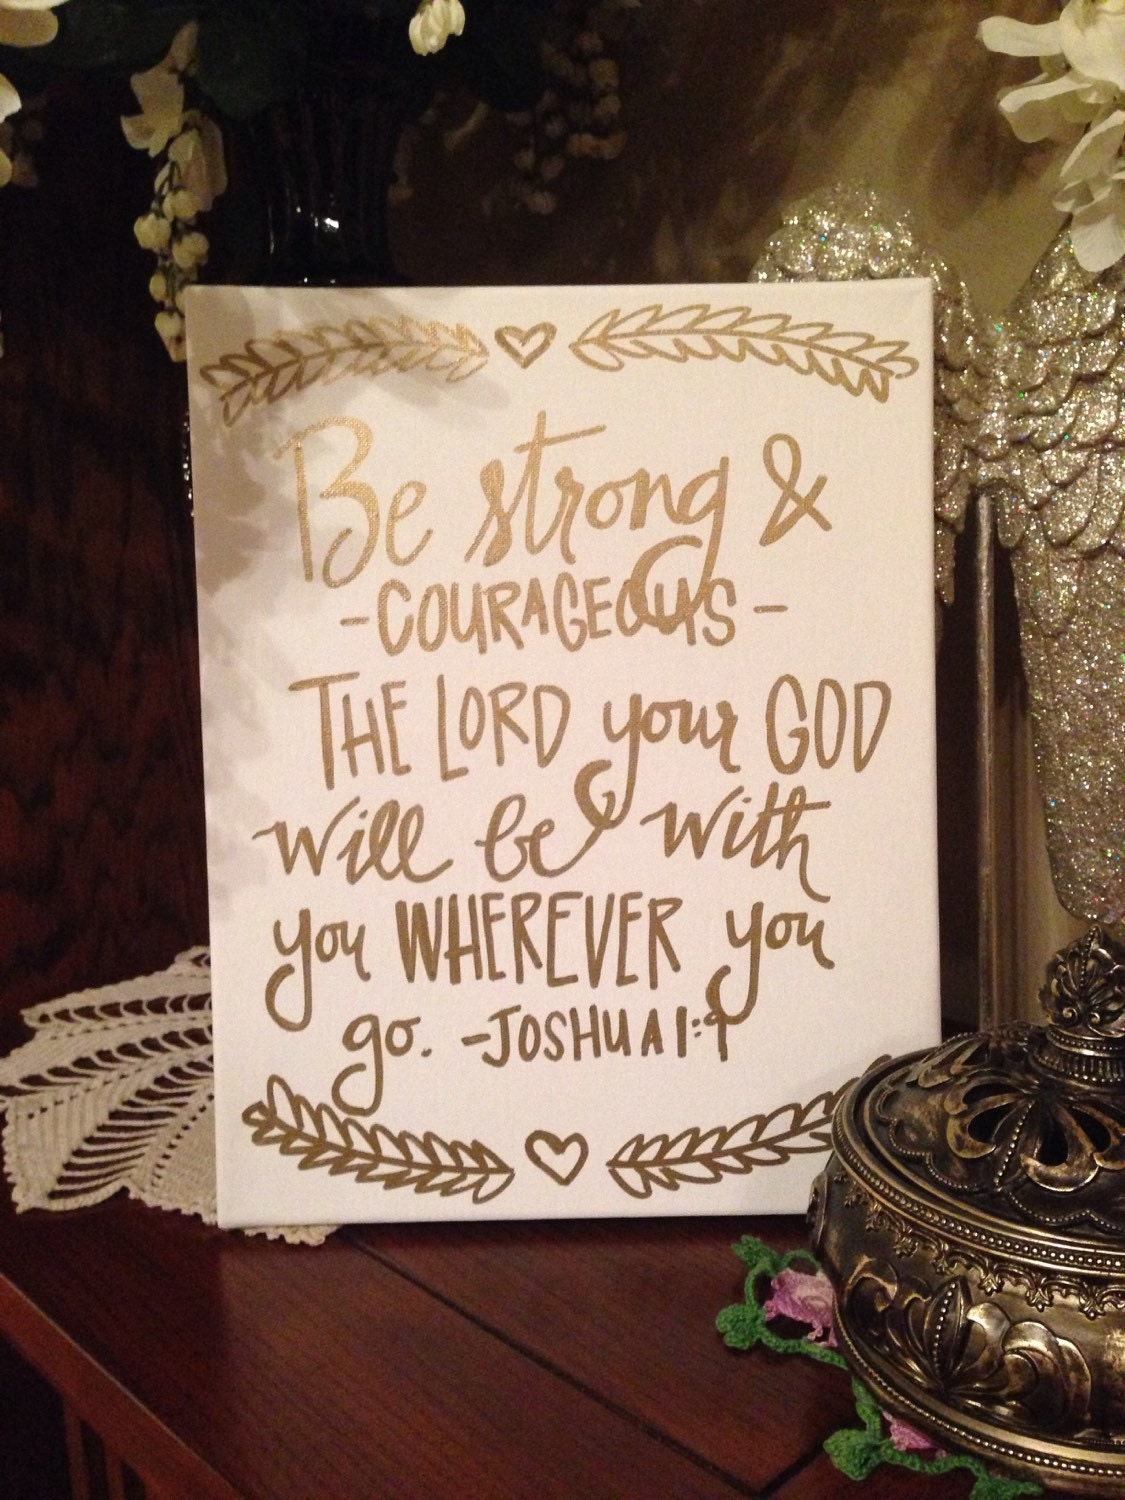 Be strong &
-COURAGEOUS-
THE LORD your GOD
will be with
you WHEREVER you
go. -JOSHUA 1:9